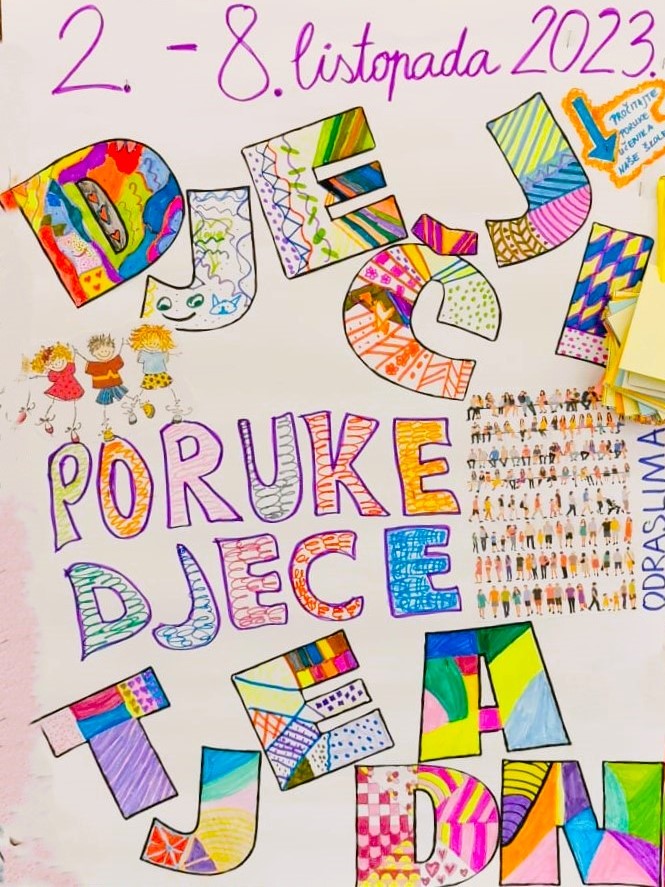 2. - 8. listopada 2023.
DJEČJI
PROČITAJTE
PORUKE
UČENIKA
NAŠE ŠKOL
PORUKE
DJECE
ODRASLIMA
TJEDAN